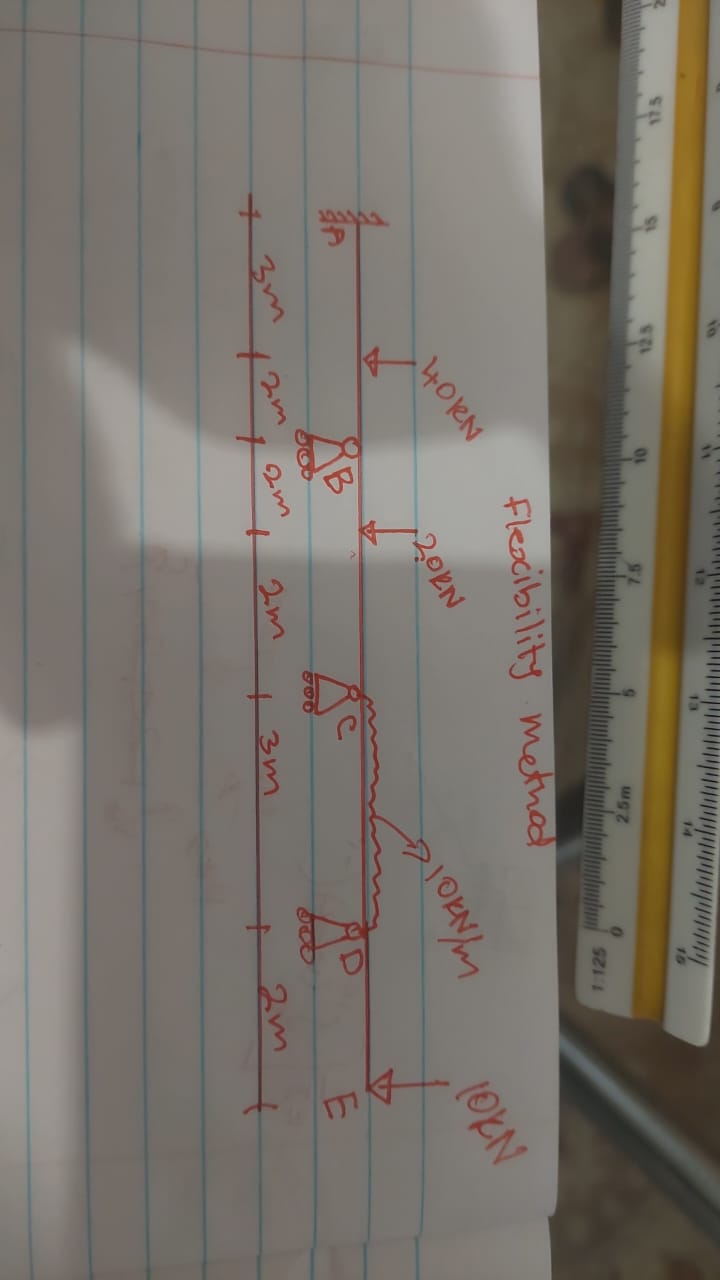 flexibility method
40KN
20KN
10KN/m
10KN
A
B
C
D
E
3m
2m
2m
2m
3m
2m
17.5
15
12.5
10
7.5
5
2.5m
0
1:125
11
12
13
14
15